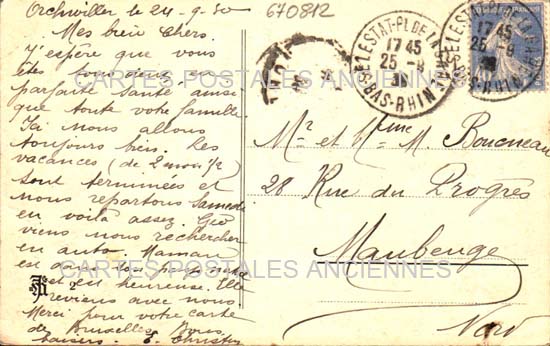 Orchwiller le 24-9-30
670812
Mes bien Chers.
J'espère que vous
êtes tous en
parfaite santé ainsi
que toute votre famille.
Ici nous allons
toujours bien. Les
vacances (de 2 mois 1/2
sont terminées et
nous repartons Samedi
en voilà assez. Geo
viens nous rechercher
en auto. Maman
est dans les
est heureuse. Elle
reviens avec nous
Merci pour votre carte
de Bruxelles. Bons
baisers. E. Christen
SELESTAT-PL DE LA GARE
17 45
25 -9
30
BAS-RHIN
17 45
25 -9
BAS-RHIN
Mr et Mme M. Boucneau
28 Rue du Progrès
Maubeuge
Nord
CARTES POSTALES ANCIENNES
CARTES POSTALES ANCIENNES